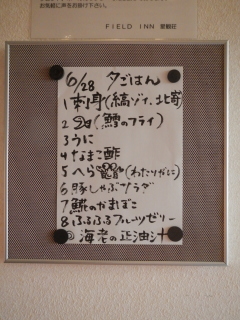 お気軽に声をお掛け下さい。
FIELD INN 星観荘
6/28 夕ごはん
1 刺身(縞ゾイ、北寄)
2 (鱈のフライ)
3 うに
4 なまこ酢
5 へら (わたりがに)
6 豚しゃぶサラダ
7 鮭のかまぼこ
8 ふるふるフルーツゼリー
◎ 海老の正油汁